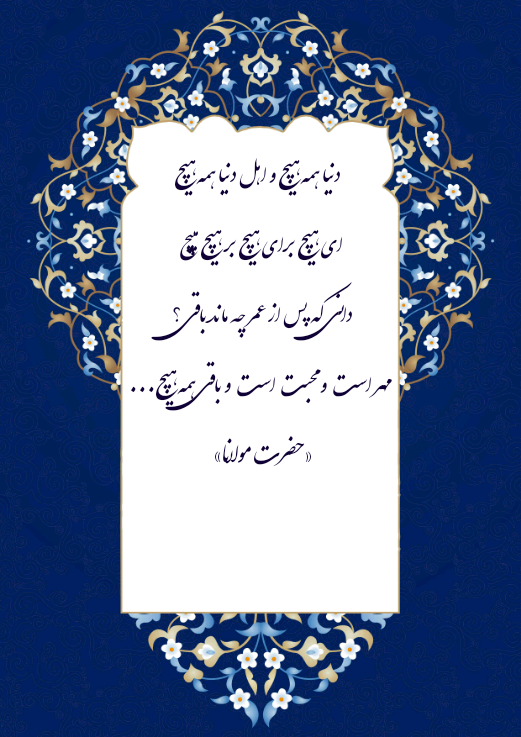 دنیا همه هیچ و اهل دنیا همه هیچ
ای هیچ برای هیچ بر هیچ مپیچ
دانی که پس از عمر چه ماند باقی ؟
مهر است و محبت است و باقی همه هیچ...
«حضرت مولانا»